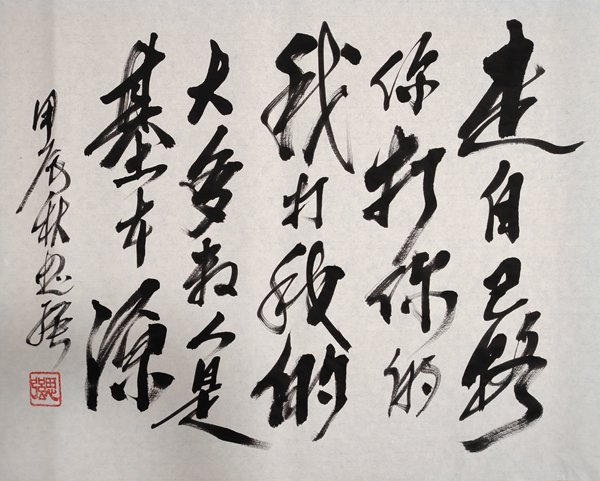 走自己路
你打你的
我打我的
大多数人是
基本源
甲辰秋思强
思强